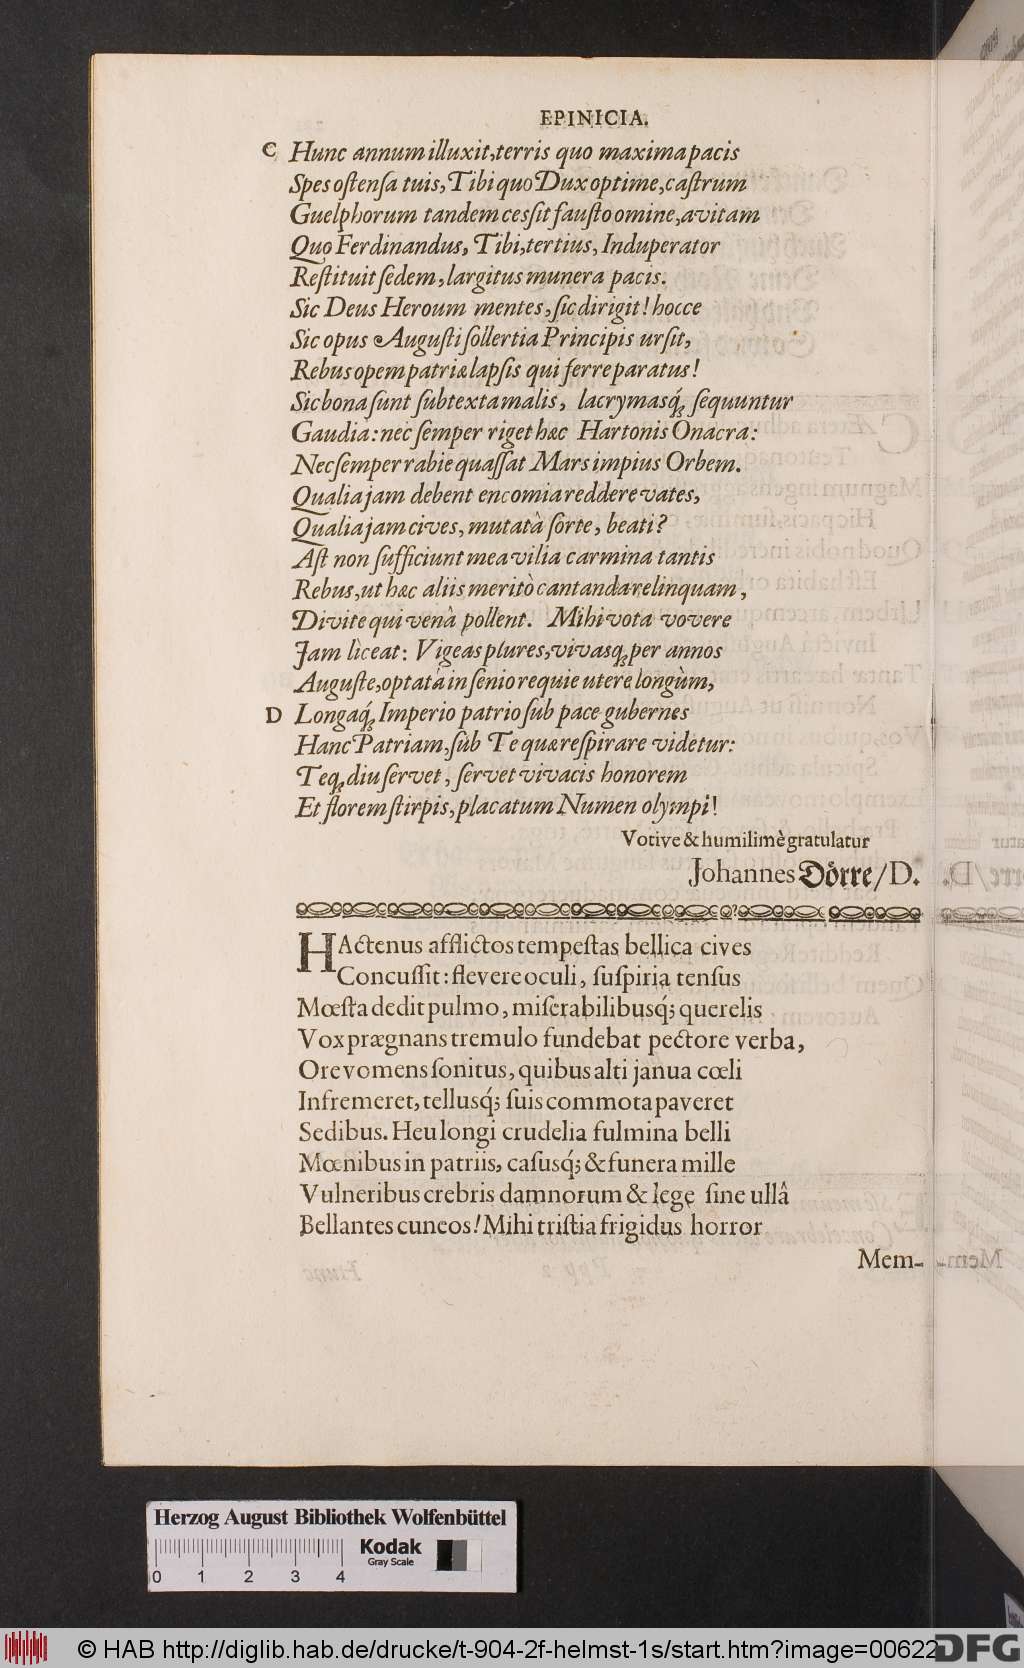 EPINICIA.
C Hunc annum illuxit, terris quo maxima pacis
Spes ostenſa tuis, Tibi quo Dux optime, caſtrum
Guelphorum tandem cesſit fauſto omine, avitam
Quo Ferdinandus, Tibi, tertius, Induperator
Reſtituit ſedem, largitus munera pacis.
Sic Deus Heroum mentes, ſic dirigit! hocce
Sic opus Auguſti ſollertia Principis urſit,
Rebus opem patriæ lapſis qui ferre paratus!
Sic bona ſunt ſubtexta malis, lacrymasq́; ſequuntur
Gaudia: nec ſemper riget hæc Hartonis Onacra:
Nec ſemper rabie quaſſat Mars impius Orbem.
Qualia jam debent encomia reddere vates,
Qualia jam cives, mutatà ſorte, beati?
Aſt non ſufficiunt mea vilia carmina tantis
Rebus, ut hæc aliis meritò cantanda relinquam,
Divite qui venà pollent. Mihi vota vovere
Jam lìceat: Vigeas plures, vivasq; per annos
Auguſte, optatá in ſenio requie utere longùm,
D Longaq́; Imperio patrio ſub pace gubernes
Hanc Patriam, ſub Te quæ reſpirare videtur:
Teq; diu ſervet, ſervet vivacis honorem
Et florem ſtirpis, placatum Numen olympi!
Votive & humilimè gratulatur
Johannes Dörre/D.
HActenus afflictos tempeſtas bellica cives
Concuſſit: flevere oculi, ſuſpiria tenſus
Mœſta dedit pulmo, miſerabilibusq́; querelis
Vox prægnans tremulo fundebat pectore verba,
Ore vomens ſonitus, quibus alti janua cœli
Infremeret, tellusq́; ſuis commota paveret
Sedibus. Heu longi crudelia fulmina belli
Mœnibus in patriis, caſusq́; & funera mille
Vulneribus crebris damnorum & lege ſine ullâ
Bellantes cuneos! Mihi triſtia frigidus horror
Mem-
Herzog August Bibliothek Wolfenbüttel
Kodak
Gray Scale
0 1 2 3 4
© HAB http://diglib.hab.de/drucke/t-904-2f-helmst-1s/start.htm?image=00622
DFG